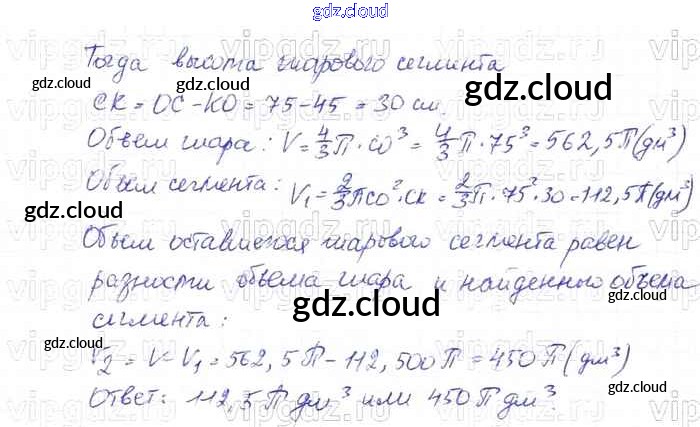 gdz.cloud
Тогда высота шарового сегмента
gdz.cloud gdz.cloud
CK = OC - KO = 75 - 45 = 30 см.
gdz.cloud
Объем шара: V = 4/3 П · CO³ = 4/3 П · 75³ = 562,5П (дм³)
Объем сегмента: V₁ = 2/3 ПCO² · CK = 2/3 П · 75² · 30 = 112,5П (дм³)
gdz.cloud gdz.cloud
Объем оставшегося шарового сегмента равен
разности объема шара и найденного объема
gdz.cloud
сегмента:
gdz.cloud gdz.cloud
V₂ = V - V₁ = 562,5П - 112,500П = 450П (дм³)
Ответ: 112,5П дм³ или 450П дм³.
gdz.cloud gdz.cloud
gdz.cloud